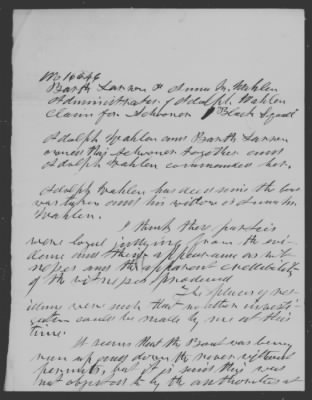 No 10696
Barth Larson & Anna M. Wahlen
Administratrix of Adolph Wahlen
Claim for Schooner "Black Squall"
Adolph Wahlen and Barth Larson
owned this Schooner together and
Adolph Wahlen commanded her.
Adolph Wahlen has died since the loss
was taken and his widow is
Wahlen.
I think these parties
were loyal judging from the evi-
dence and their appearance as wit-
nesses and the apparent credibility
of the witnesses produced
The places of resi-
dence were such that no better investi-
gation could be made by me at this
time.
It seems that the Boat was being
run up and down the river without
permits, but it is said this was
not objected to by the authorities at